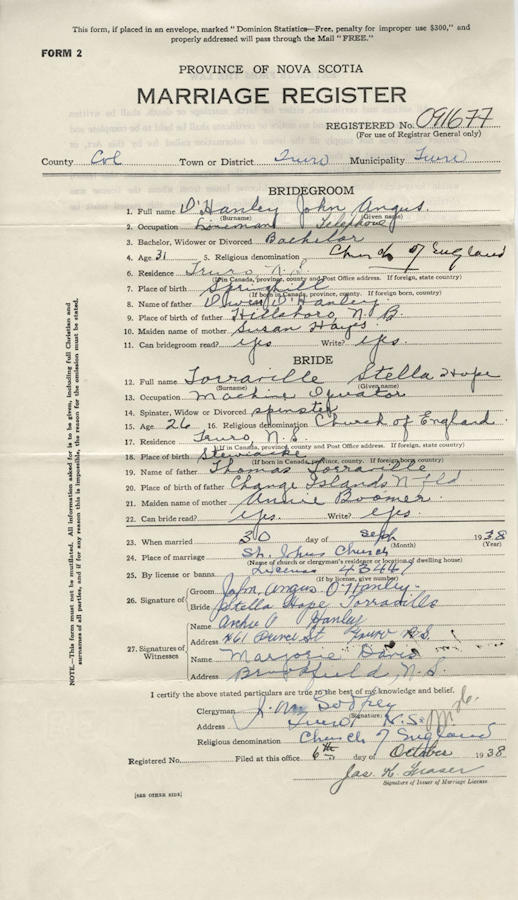 This form, if placed in an envelope, marked "Dominion Statistics—Free, penalty for improper use $300," and
properly addressed will pass through the Mail "FREE."
FORM 2
PROVINCE OF NOVA SCOTIA
MARRIAGE REGISTER
REGISTERED No. 091677
(For use of Registrar General only)
County Col Town or District Truro Municipality Truro
BRIDEGROOM
1. Full name O'Hanley John Angus.
(Surname) (Given name)
2. Occupation Lineman Telephone
3. Bachelor, Widower or Divorced Bachelor
4. Age 31 5. Religious denomination Church of England
6. Residence Truro, N.S.
(If in Canada, province, county and Post Office address. If foreign, state country)
7. Place of birth Springhill
(If born in Canada, province, county. If foreign born, country)
8. Name of father O'Hanley
9. Place of birth of father Hillsboro, N.B.
10. Maiden name of mother Susan Hayes
11. Can bridegroom read? yes Write? yes.
BRIDE
12. Full name Torraville Stella Hope
(Surname) (Given name)
13. Occupation Machine Operator
14. Spinster, Widow or Divorced spinster
15. Age 26 16. Religious denomination Church of England
17. Residence Truro, N.S.
(If in Canada, province, county and Post Office address. If foreign, state country)
18. Place of birth Stewiacke
(If born in Canada, province, county. If foreign born, country)
19. Name of father Thomas Torraville
20. Place of birth of father Change Islands Nfld
21. Maiden name of mother Annie Boomer.
22. Can bride read? yes. Write? yes.
23. When married 30 day of Sept 1938
(Month) (Year)
24. Place of marriage St. Johns Church
(Name of church or clergyman's residence or location of dwelling house)
25. By license or banns License 43447
(If by license, give number)
26. Signature of
Groom John Angus O'Hanley
Bride Stella Hope Torraville
27. Signatures of Witnesses
Name Archie A Hanley
Address 461 St Truro N.S.
Name Marjorie Davis
Address Brookfield, N.S.
I certify the above stated particulars are true to the best of my knowledge and belief.
Clergyman J. M.
(Signature)
Address Truro N.S.
Religious denomination Church of England
Registered No. Filed at this office 6th day of October 1938
Jas. K. Fraser
Signature of Issuer of Marriage License
[SEE OTHER SIDE]
NOTE.—This form must not be mutilated. All information asked for is to be given, including full Christian and
surnames of all parties, and if for any reason this is impossible, the reason for the omission must be stated.